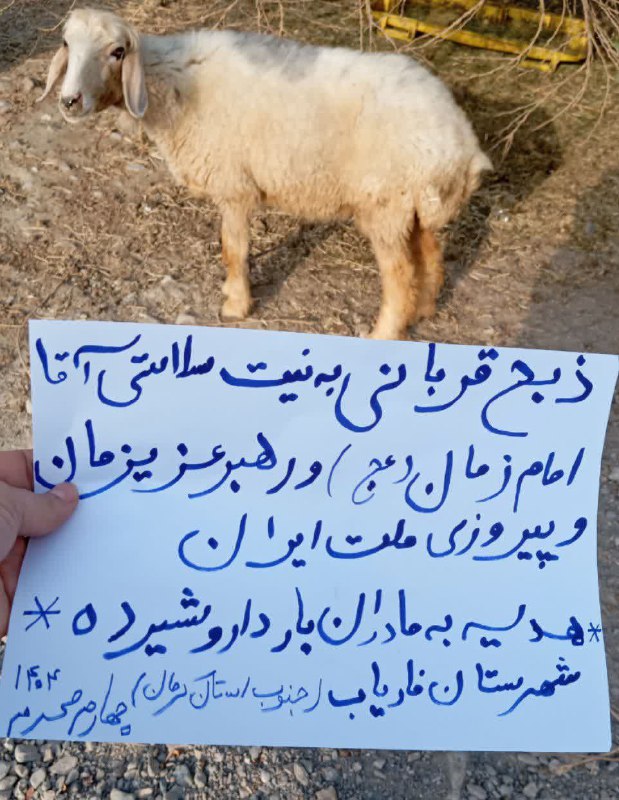 ذبح قربانی به نیت سلامتی آقا
امام زمان (عج) و رهبر عزیزمان
و پیروزی ملت ایران
* هدیه به مادران باردار و شیرده *
شهرستان فاریاب (جنوب استان کرمان) چهارم محرم ۱۴۰۴